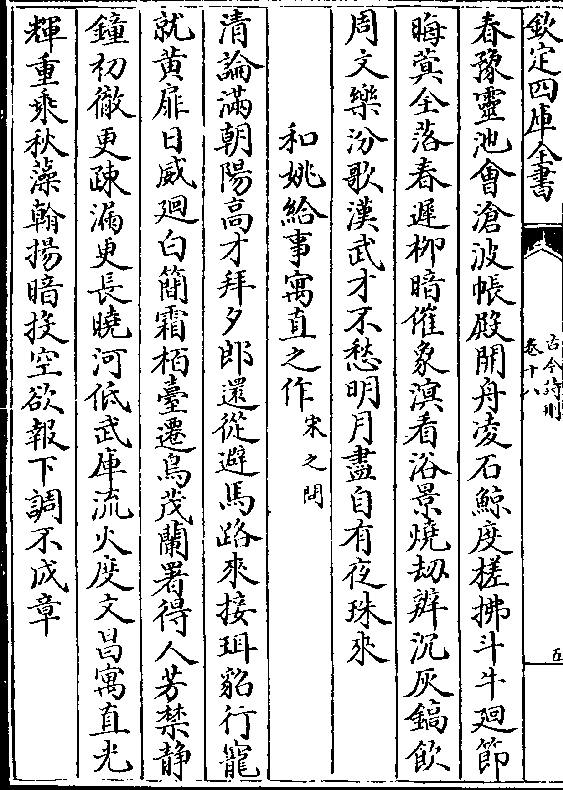 欽定四庫全書
古今詩刪
卷十八
五
春豫靈池會滄波帳殿開舟凌石鯨度槎拂斗牛廻節
晦蓂全落春遲柳暗催象溟看浴景燒劫辨沉灰鎬飲
周文樂汾歌漢武才不愁明月盡自有夜珠來
和姚給事寓直之作
宋之問
清論滿朝陽高才拜夕郎還從避馬路來接珥貂行寵
就黄扉日威廻白簡霜栢臺遷鳥茂蘭署得人芳禁静
鐘初徹更疎漏更長曉河低武庫流火度文昌寓直光
輝重乗秋藻翰揚暗投空欲報下調不成章